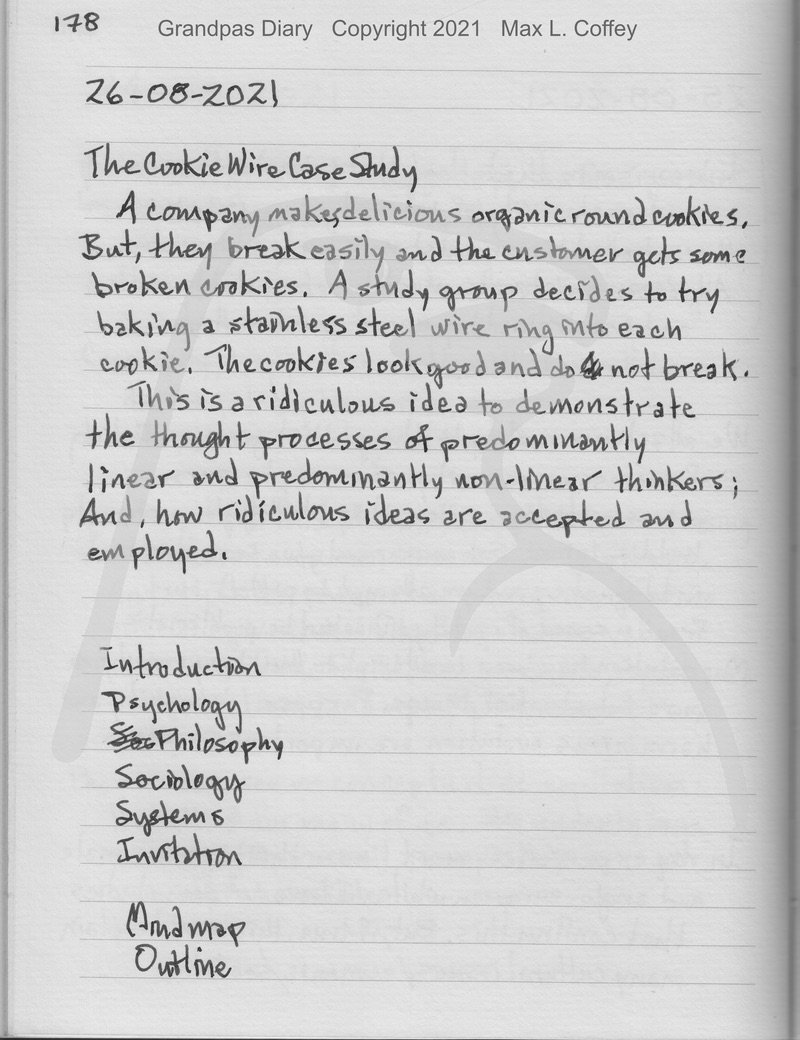 178
Grandpas Diary Copyright 2021 Max L. Coffey
26-08-2021
The Cookie Wire Case Study
A company makes delicious organic round cookies.
But, they break easily and the customer gets some
broken cookies. A study group decides to try
baking a stainless steel wire ring into each
cookie. The cookies look good and do not break.
This is a ridiculous idea to demonstrate
the thought processes of predominantly
linear and predominantly non-linear thinkers;
And, how ridiculous ideas are accepted and
employed.
Introduction
Psychology
Philosophy
Sociology
Systems
Invitation
Mindmap
Outline